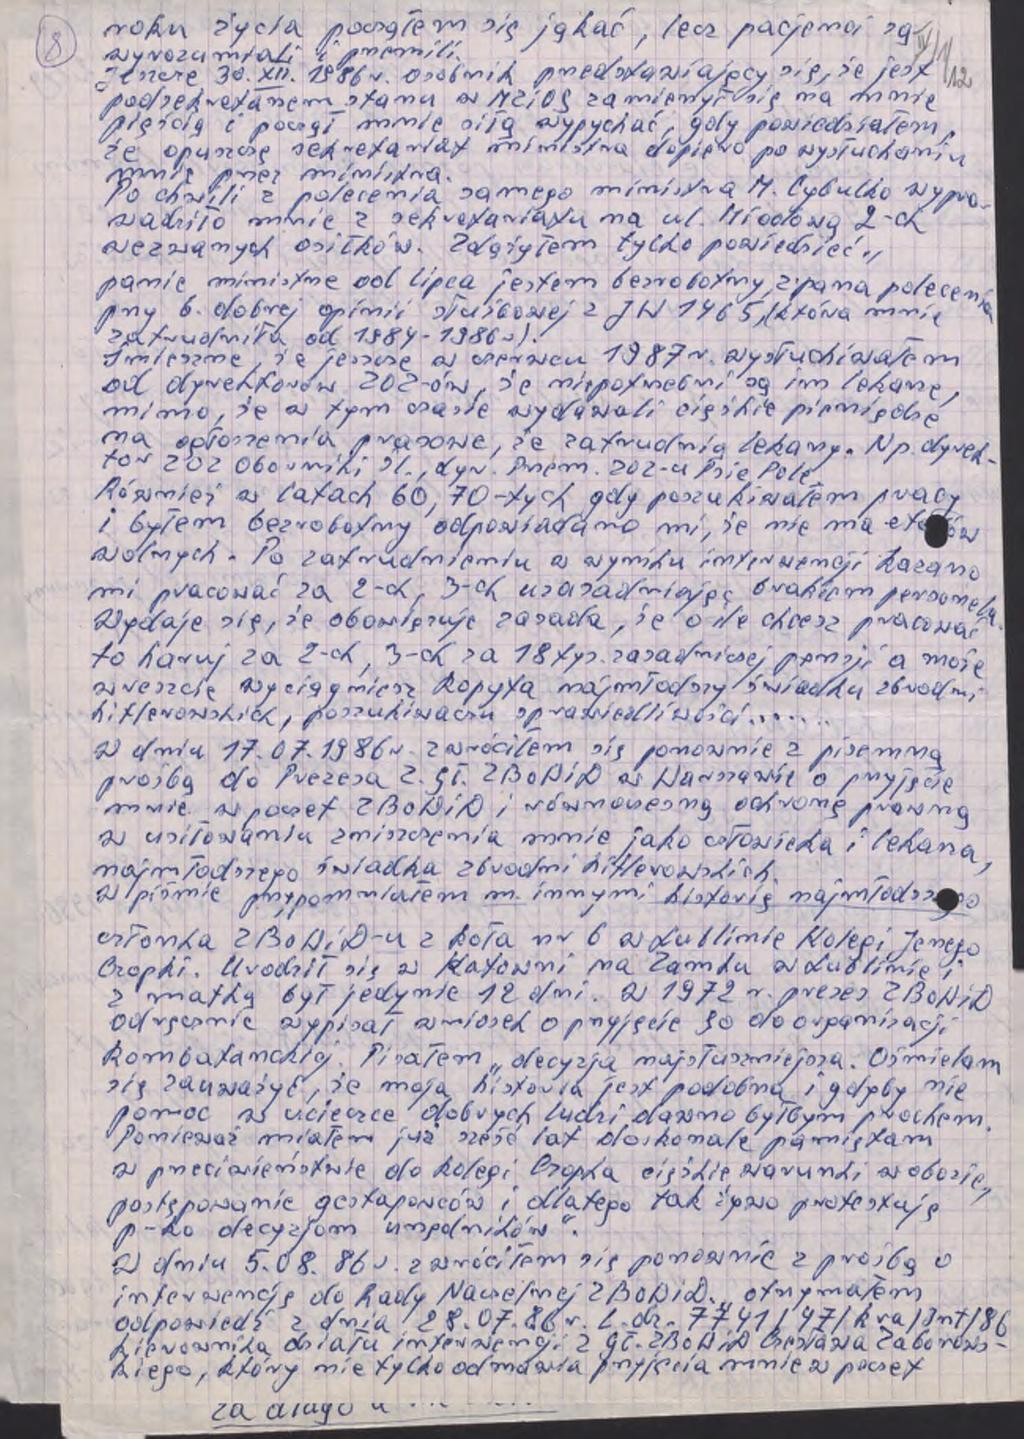 8
IV/1/12
roku życia począłem się jąkać, lecz pacjenci są
wyrozumiali i przemili.
Jeszcze 30.XII.1986r. osobnik przedstawiający się, że jest
podsekretarzem stanu w MZiOS zamierzył się na mnie
pięścią i począł mnie siłą wypychać, gdy powiedziałem,
że opuszczę sekretariat ministra dopiero po wysłuchaniu
mnie przez ministra.
Po chwili z polecenia samego ministra M. Cybulko wypro-
wadziło mnie z sekretariatu na ul. Miodową 2-ch
wezwanych osiłków. Zdążyłem tylko powiedzieć „
panie ministrze od lipca jestem bezrobotny z pana polecenia
przy b. dobrej opinii służbowej z JW 1465, (która mnie
zatrudniła od 1984-1986r).
Śmieszne, że jeszcze w czerwcu 1987r. wysłuchiwałem
od dyrektorów ZOZ-ów, że niepotrzebni są im lekarze,
mimo, że w tym czasie wydawali ciężkie pieniądze
na ogłoszenia prasowe, że zatrudnią lekarzy. Np. dyrek-
tor ZOZ Oborniki Śl., dyr. Przem. ZOZ-u Psie Pole
Również w latach 60, 70-tych gdy poszukiwałem pracy
i byłem bezrobotny odpowiadano mi, że nie ma etatów
wolnych. Po zatrudnieniu w wyniku interwencji kazano
mi pracować za 2-ch, 3-ch uzasadniając brakiem personelu.
Wydaje się, że obowiązuje zasada, że o ile chcesz pracować
to haruj za 2-ch, 3-ch za 18 tys. zasadniczej pensji a może
wreszcie wyciągniesz kopyta najmłodszy świadku zbrodni
hitlerowskich, poszukiwaczu sprawiedliwości.......
W dniu 17.07.1986r. zwróciłem się ponownie z pisemną
prośbą do Prezesa Z. Gł. ZBoWiD w Warszawie o przyjęcie
mnie w poczet ZBoWiD i równoczesną ochronę prawną
w usiłowaniu zniszczenia mnie jako człowieka i lekarza,
najmłodszego świadka zbrodni hitlerowskich.
W piśmie przypomniałem m. innymi historię najmłodszego
członka ZBoWiD-u z koła nr 6 w Lublinie Kolegi Jerzego
Czopki. Urodził się w Katowni na Zamku w Lublinie i
z matką był jedynie 12 dni. W 1972 r. prezes ZBoWiD
odręcznie wypisał wniosek o przyjęcie go do organizacji
Kombatanckiej. Pisałem „decyzja najsłuszniejsza. Ośmielam
się zauważyć, że moja historia jest podobna i gdyby nie
pomoc w ucieczce dobrych ludzi dawno byłbym prochem.
Ponieważ miałem już sześć lat doskonale pamiętam
w przeciwieństwie do kolegi Czopka ciężkie warunki w obozie,
postępowanie gestapowców i dlatego tak żywo protestuję
p-ko decyzjom urzędników".
W dniu 5.08.86r. zwróciłem się ponownie z prośbą o
interwencję do Rady Naczelnej ZBoWiD, otrzymałem
odpowiedź z dnia 28.07.86r. L.dz. 7741/47/kra/Int/86
kierownika działu interwencji Z Gł. ZBoWiD Czesława Zaborows-
kiego, który nie tylko odmawia przyjęcia mnie w poczet